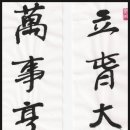 立大
萬事亨